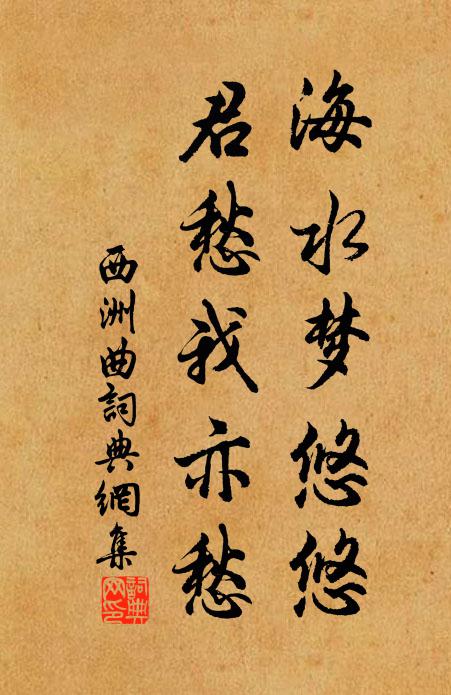 海水梦悠悠
君愁我亦愁
西洲曲詞典網集
詞典
网印